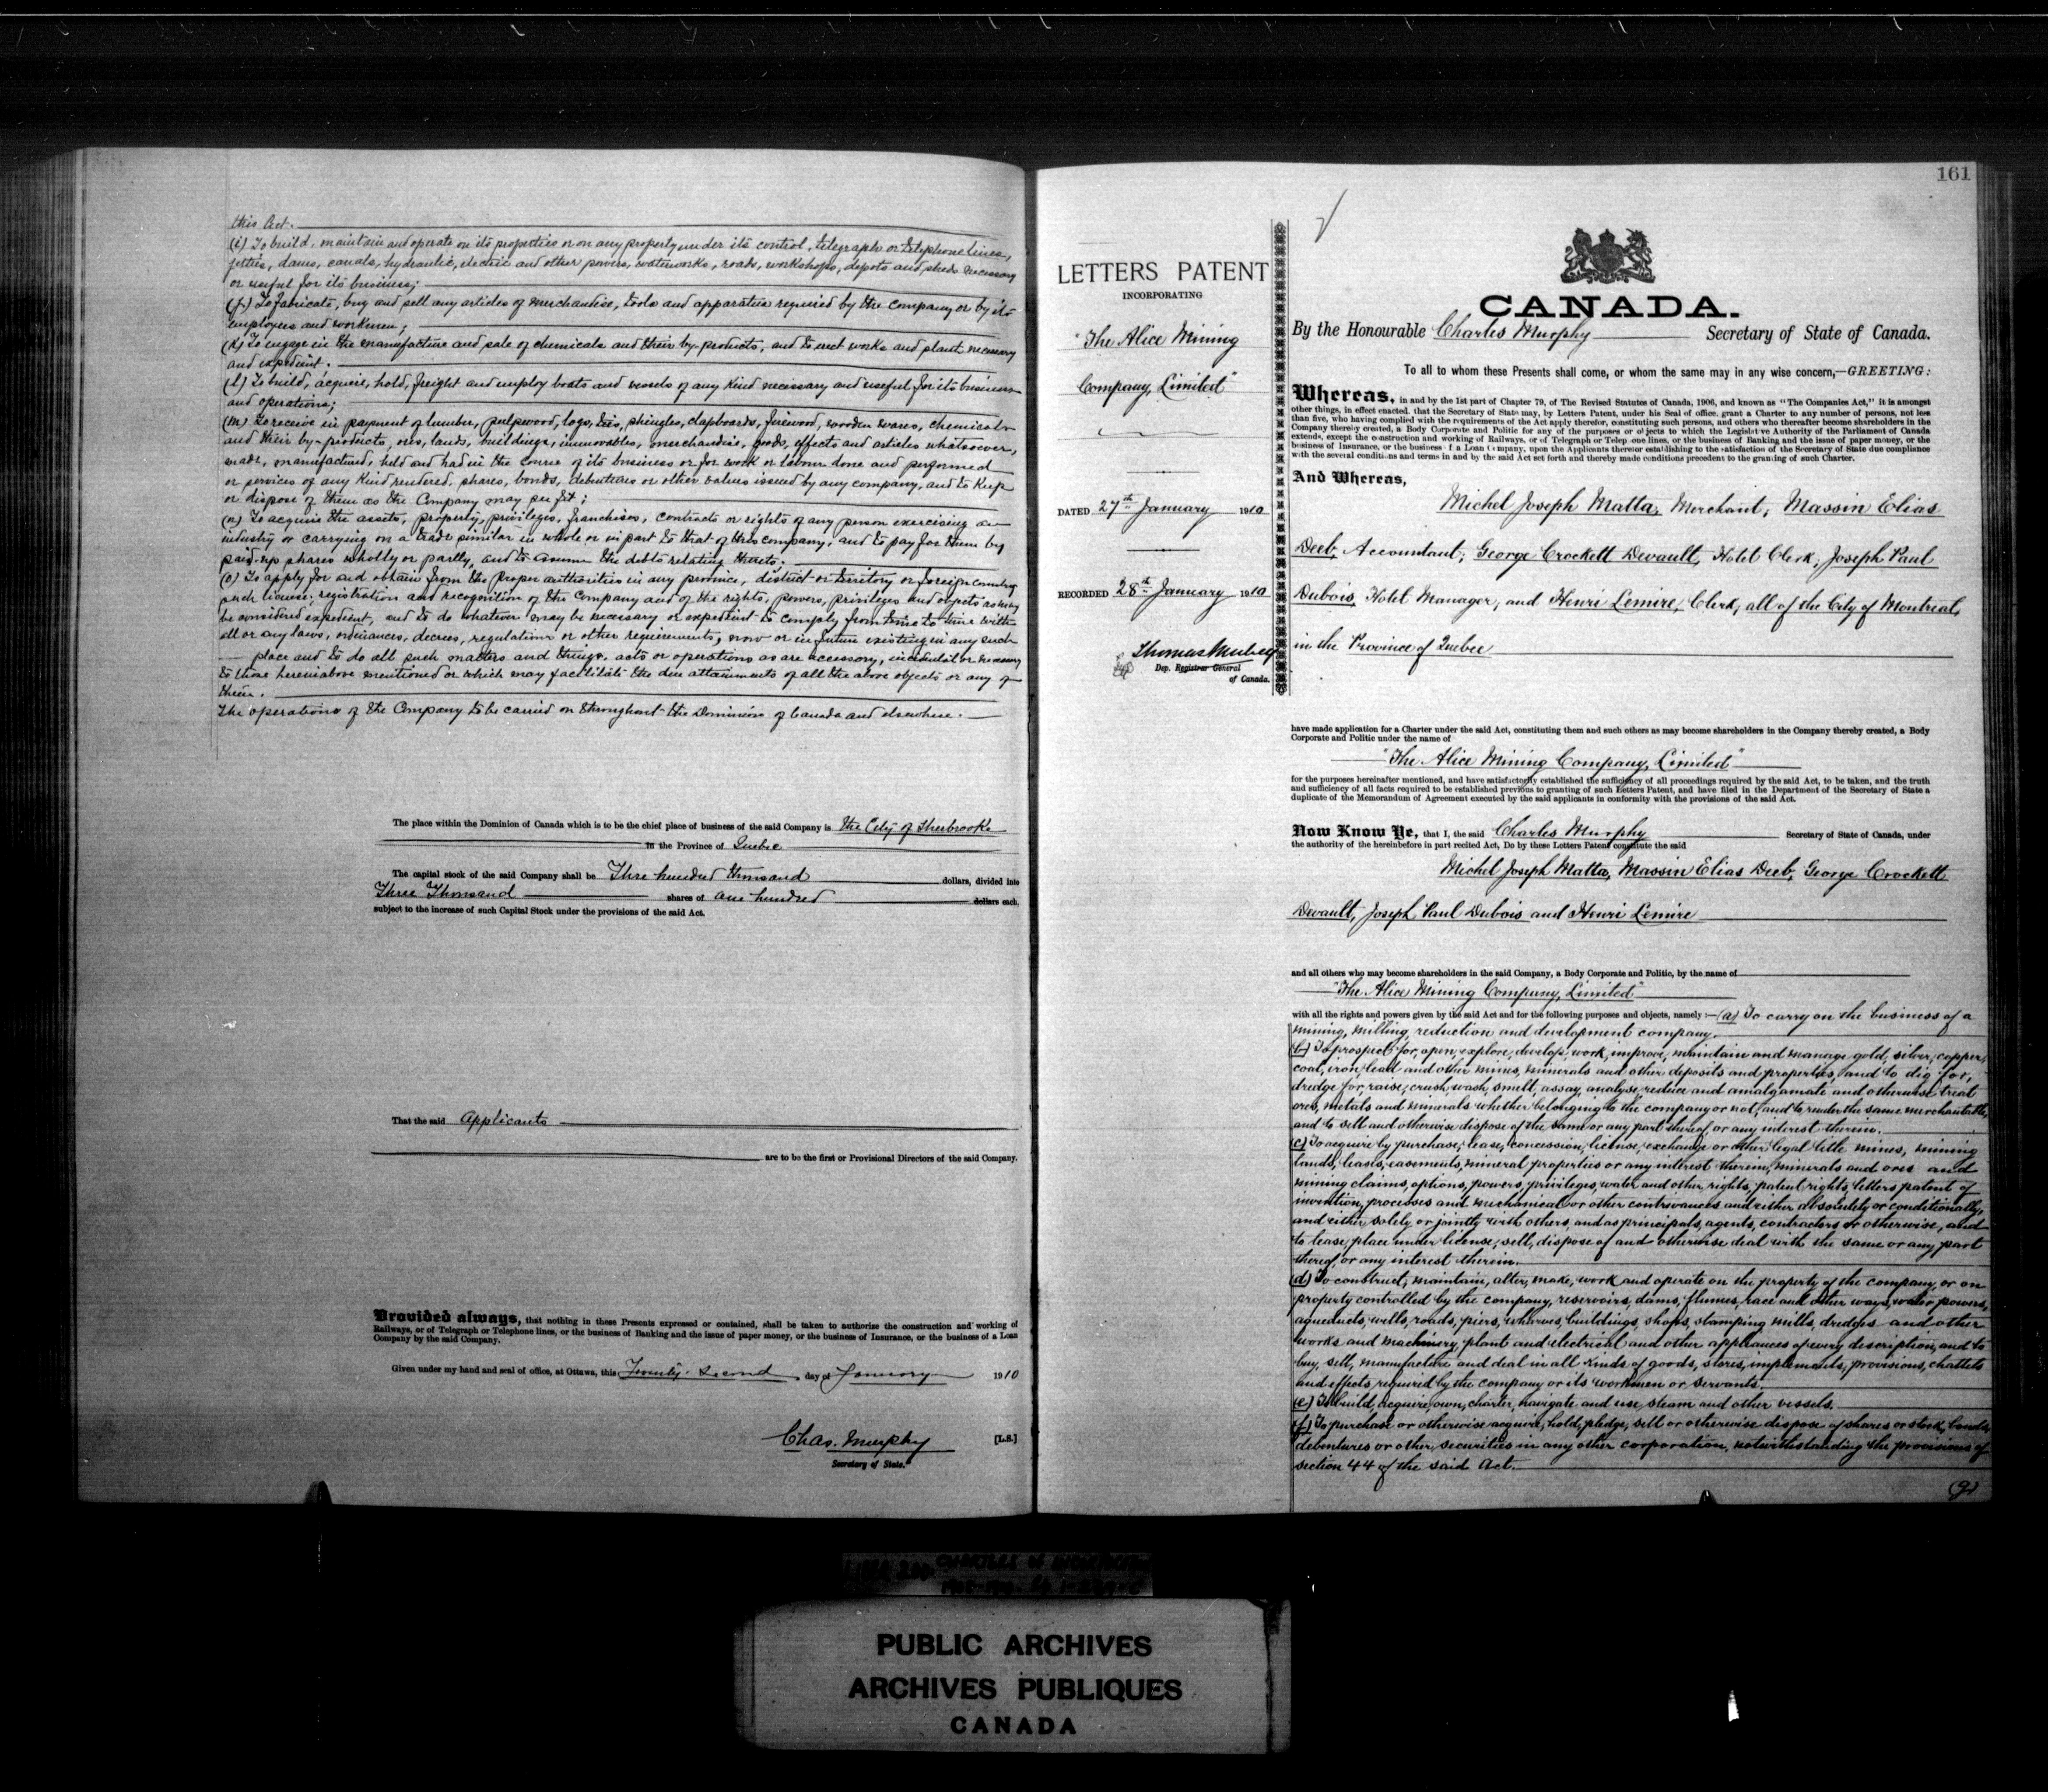 this Act.
(i) To build, maintain and operate on its properties or on any property under its control, telegraph or telephone lines,
jetties, dams, canals, hydraulic, electric and other powers, waterworks, roads, workshops, depots and sheds necessary
or useful for its business;
(j) To fabricate, buy and sell any articles of merchandise, tools and apparatus required by the company or by its
employees and workmen;
(k) To engage in the manufacture and sale of chemicals and their by-products, and to erect works and plant necessary
and expedient.
(l) To build, acquire, hold, freight and employ boats and vessels of any kind necessary and useful for its business
and operations;
(m) To receive in payment of lumber, pulpwood, logs, ties, shingles, clapboards, firewood, wooden wares, chemicals
and their by-products, ores, lands, buildings, immovables, merchandise, goods, effects and articles whatsoever,
made, manufactured, held and had in the course of its business or for work or labour done and performed
or services of any kind rendered, shares, bonds, debentures or other values issued by any company, and to keep
or dispose of them as the Company may see fit;
(n) To acquire the assets, property, privileges, franchises, contracts or rights of any person exercising an
industry or carrying on a trade similar in whole or in part to that of this company, and to pay for them by
paid-up shares wholly or partly, and to assume the debts relating thereto.
(o) To apply for and obtain from the proper authorities in any province, district or territory or foreign country
such license, registration and recognition of the Company and of the rights, powers, privileges and objects as may
be considered expedient, and to do whatever may be necessary or expedient to comply from time to time with
all or any laws, ordinances, decrees, regulations or other requirements, now or in future existing in any such
place and to do all such matters and things, acts or operations as are accessory, incidental or necessary
to those hereinabove mentioned or which may facilitate the due attainments of all the above objects or any of
them.
The operations of the Company to be carried on throughout the Dominion of Canada and elsewhere.
The place within the Dominion of Canada which is to be the chief place of business of the said Company is the City of Sherbrooke
in the Province of Quebec
The capital stock of the said Company shall be Three hundred thousand dollars, divided into
Three Thousand shares of one hundred dollars each,
subject to the increase of such Capital Stock under the provisions of the said Act.
That the said Applicants
are to be the first or Provisional Directors of the said Company.
Provided always, that nothing in these Presents expressed or contained, shall be taken to authorize the construction and working of
Railways, or of Telegraph or Telephone lines, or the business of Banking and the issue of paper money, or the business of Insurance, or the business of a Loan
Company by the said Company.
Given under my hand and seal of office, at Ottawa, this Twenty-Second day of January 1910
Chas. Murphy [L.S.]
Secretary of State.
161
LETTERS PATENT
INCORPORATING
"The Alice Mining
Company, Limited"
DATED 27th January 1910
RECORDED 28th January 1910
Thomas Mulvey
Dep. Registrar General
of Canada.
CANADA.
By the Honourable Charles Murphy Secretary of State of Canada.
To all to whom these Presents shall come, or whom the same may in any wise concern,—GREETING:
Whereas, in and by the 1st part of Chapter 79, of The Revised Statutes of Canada, 1906, and known as "The Companies Act," it is amongst
other things, in effect enacted, that the Secretary of State may, by Letters Patent, under his Seal of office, grant a Charter to any number of persons, not less
than five, who having complied with the requirements of the Act apply therefor, constituting such persons, and others who thereafter become shareholders in the
Company thereby created, a Body Corporate and Politic for any of the purposes or objects to which the Legislative Authority of the Parliament of Canada
extends, except the construction and working of Railways, or of Telegraph or Telephone lines, or the business of Banking and the issue of paper money, or the
business of Insurance, or the business of a Loan Company, upon the Applicants therefor establishing to the satisfaction of the Secretary of State due compliance
with the several conditions and terms in and by the said Act set forth and thereby made conditions precedent to the granting of such Charter.
And Whereas,
Michel Joseph Matta, Merchant, Massin Elias
Deeb, Accountant, George Crockett Devault, Hotel Clerk, Joseph Paul
Dubois, Hotel Manager, and Henri Lemire, Clerk, all of the City of Montreal,
in the Province of Quebec
have made application for a Charter under the said Act, constituting them and such others as may become shareholders in the Company thereby created, a Body
Corporate and Politic under the name of
"The Alice Mining Company, Limited"
for the purposes hereinafter mentioned, and have satisfactorily established the sufficiency of all proceedings required by the said Act, to be taken, and the truth
and sufficiency of all facts required to be established previous to granting of such Letters Patent, and have filed in the Department of the Secretary of State a
duplicate of the Memorandum of Agreement executed by the said applicants in conformity with the provisions of the said Act.
Now Know Ye, that I, the said Charles Murphy Secretary of State of Canada, under
the authority of the hereinbefore in part recited Act, Do by these Letters Patent constitute the said
Michel Joseph Matta, Massin Elias Deeb, George Crockett
Devault, Joseph Paul Dubois and Henri Lemire
and all others who may become shareholders in the said Company, a Body Corporate and Politic, by the name of
"The Alice Mining Company, Limited"
with all the rights and powers given by the said Act and for the following purposes and objects, namely:—(a) To carry on the business of a
mining, milling, reduction and development company.
(b) To prospect for, open, explore, develop, work, improve, maintain and manage gold, silver, copper,
coal, iron, lead and other mines, minerals and other deposits and properties, and to dig for,
dredge for, raise, crush, wash, smelt, assay, analyse, reduce and amalgamate and otherwise treat
ores, metals and minerals whether belonging to the company or not, and to render the same merchantable,
and to sell and otherwise dispose of the same or any part thereof or any interest therein.
(c) To acquire by purchase, lease, concession, license, exchange or other legal title mines, mining
lands, leases, easements, mineral properties or any interest therein, minerals and ores and
mining claims, options, powers, privileges, water and other rights, patent rights, letters patent of
invention, processes and mechanical or other contrivances and either absolutely or conditionally,
and either solely or jointly with others, and as principals, agents, contractors or otherwise, and
to lease, place under license, sell, dispose of and otherwise deal with the same or any part
thereof, or any interest therein.
(d) To construct, maintain, alter, make, work and operate on the property of the company, or on
property controlled by the company, reservoirs, dams, flumes, race and other ways, water powers,
aqueducts, wells, roads, piers, wharves, buildings, shops, stamping mills, dredges and other
works and machinery, plant and electrical and other appliances of every description, and to
buy, sell, manufacture and deal in all kinds of goods, stores, implements, provisions, chattels
and effects required by the company or its workmen or servants.
(e) To build, acquire, own, charter, navigate and use steam and other vessels.
(f) To purchase or otherwise acquire, hold, pledge, sell or otherwise dispose of shares or stock, bonds,
debentures or other securities in any other corporation, notwithstanding the provisions of
section 44 of the said Act.
(g)
PUBLIC ARCHIVES
ARCHIVES PUBLIQUES
CANADA